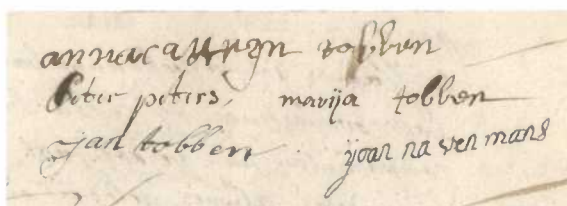 anna cattrijn tobben
peter peters, marija tobben
Jan tobben ijoanna venmans